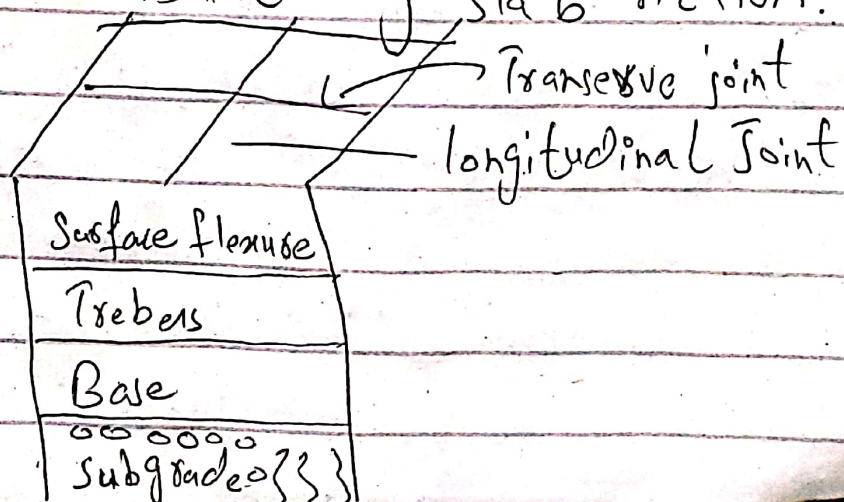 slab action.
Transerve joint
longitudinal Joint
Surface flexure
Trebers
Base
subgrade